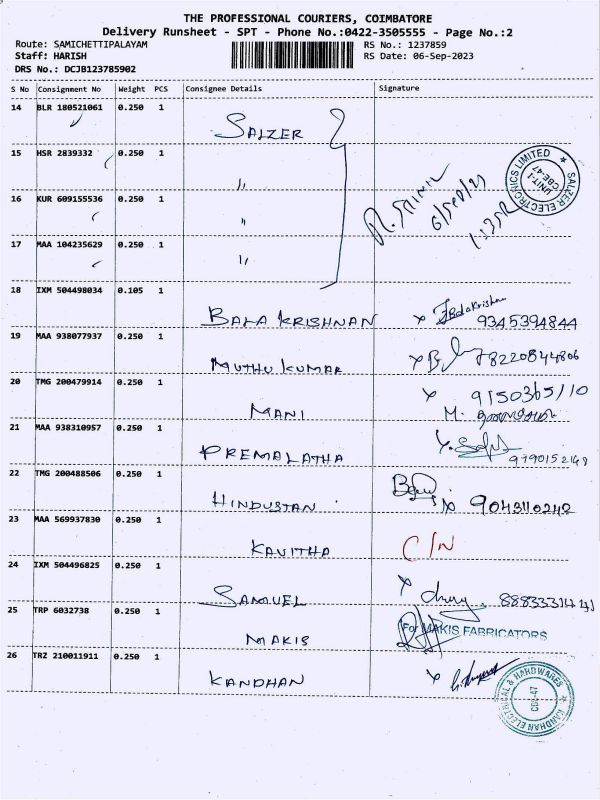 THE PROFESSIONAL COURIERS, COIMBATORE
Delivery Runsheet - SPT - Phone No.:0422-3505555 - Page No.:2
Route: SAMICHETTIPALAYAM RS No.: 1237859
Staff: HARISH RS Date: 06-Sep-2023
DRS No.: DCJB123785902
S No Consignment No Weight PCS Consignee Details Signature
14 BLR 180521061 0.250 1 SALZER
15 HSR 2839332 0.250 1 "
16 KUR 609155536 0.250 1 "
17 MAA 104235629 0.250 1 "
SALZER ELECTRONICS LIMITED
UNIT-1
CBE-47
18 IXM 504498034 0.105 1 BALA KRISHNAN x Balakrishnan 9345394844
19 MAA 938077937 0.250 1 MUTHU KUMAR x 78220844806
20 TMG 200479914 0.250 1 MANI x 9150365110
M.
21 MAA 938310957 0.250 1 PREMALATHA x 9790152148
22 TMG 200488506 0.250 1 HINDUSTAN x 9043110242
23 MAA 569937830 0.250 1 KAVITHA C/N
24 IXM 504496825 0.250 1 SAMUEL x
25 TRP 6032738 0.250 1 MAKIS For MAKIS FABRICATORS
26 TRZ 210011911 0.250 1 KANDHAN x
KANDHAN ELECTRICAL & HARDWARES
CBE-47